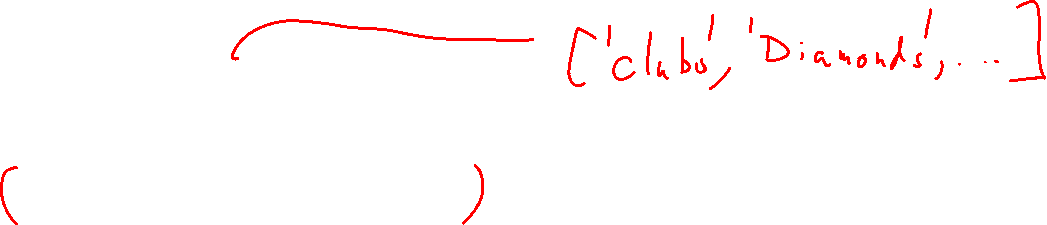 ['Clubs', 'Diamonds', ...]
( )